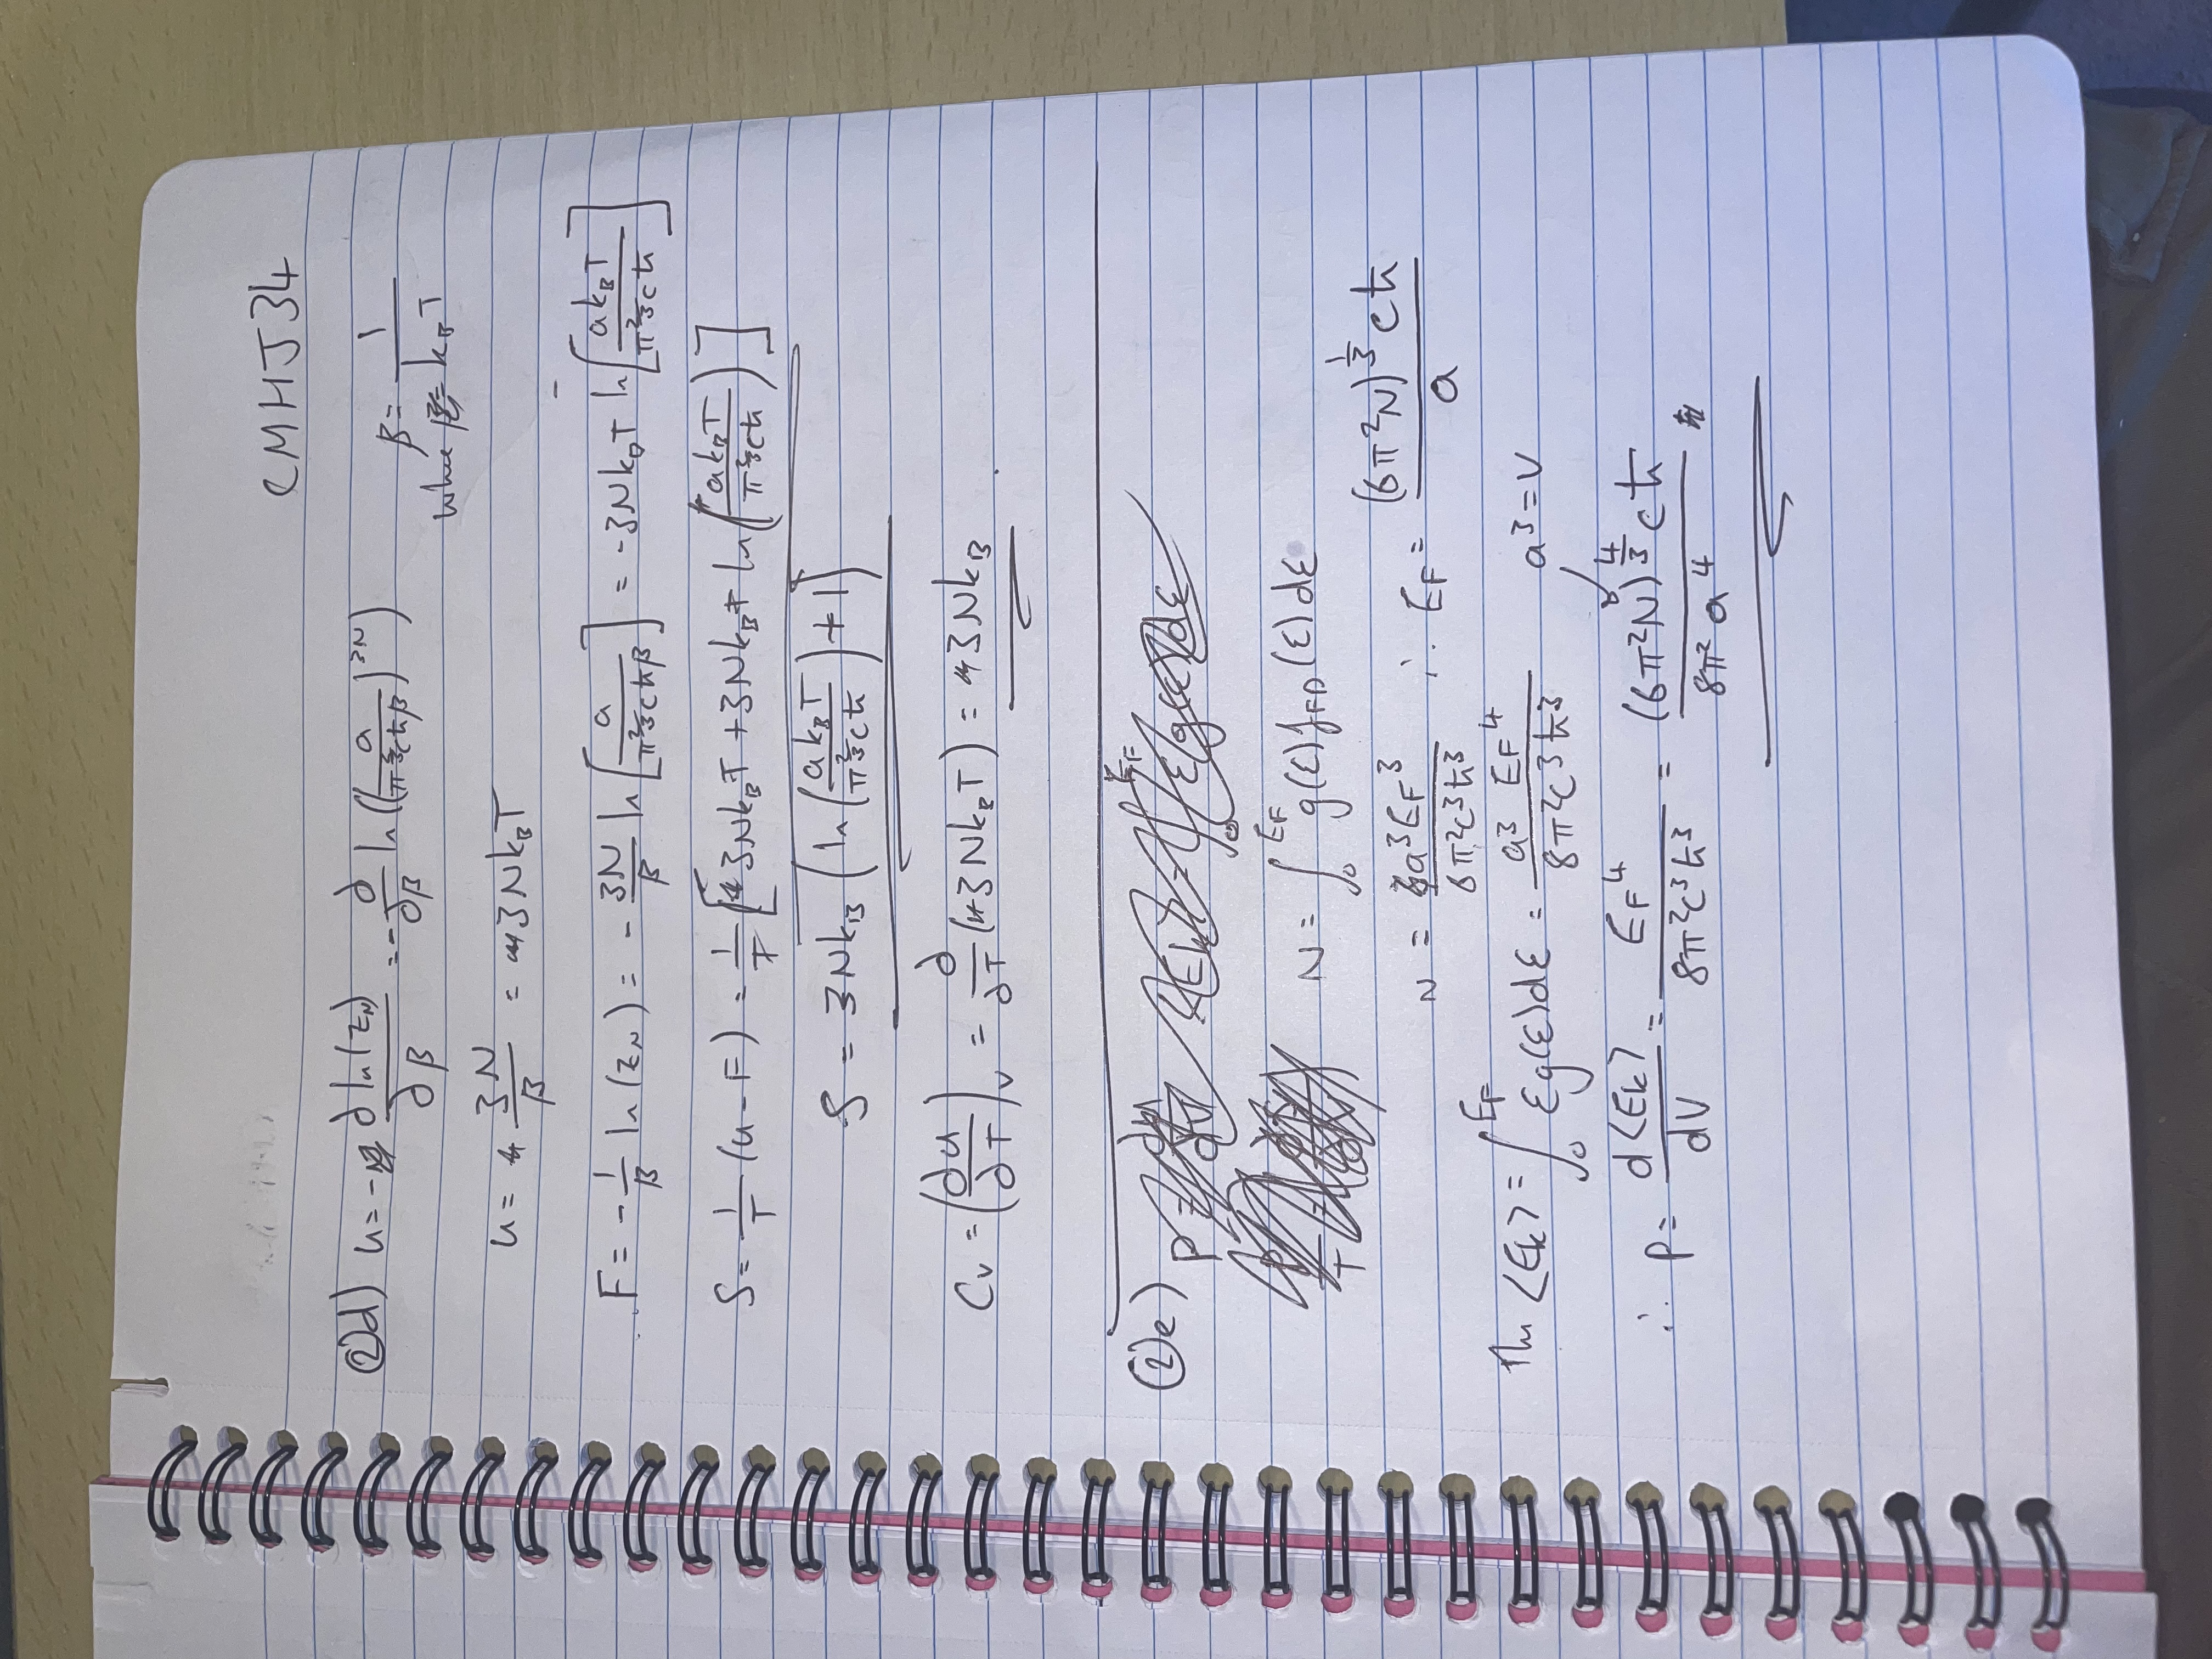 CMHJ34
②d) U = - ∂ ln(Z_N)/∂β = - ∂/∂β ln((a/(π^{2/3}cħβ))^{3N})
where β = 1/(k_B T)
U = 3N/β = 3Nk_BT
F = - 1/β ln(Z_N) = - 3N/β ln[a/(π^{2/3}cħβ)] = -3Nk_BT ln[ak_BT/(π^{2/3}cħ)]
S = 1/T (U - F) = 1/T [3Nk_BT + 3Nk_BT ln(ak_BT/(π^{2/3}cħ))]
S = 3Nk_B (ln(ak_BT/(π^{2/3}cħ)) + 1)
C_V = (∂U/∂T)_V = ∂/∂T (3Nk_BT) = 3Nk_B
②e)
N = ∫_0^{E_F} g(ε) f_FD(ε) dε
N = a³E_F³/(6π²c³ħ³) ∴ E_F = (6π²N)^{1/3} cħ/a
⟨E_k⟩ = ∫_0^{E_F} εg(ε)dε = a³ E_F⁴/(8π²c³ħ³) a³ = V
∴ P = d⟨E_k⟩/dV = E_F⁴/(8π²c³ħ³) = (6π²N)^{4/3} cħ/(8π² a⁴)